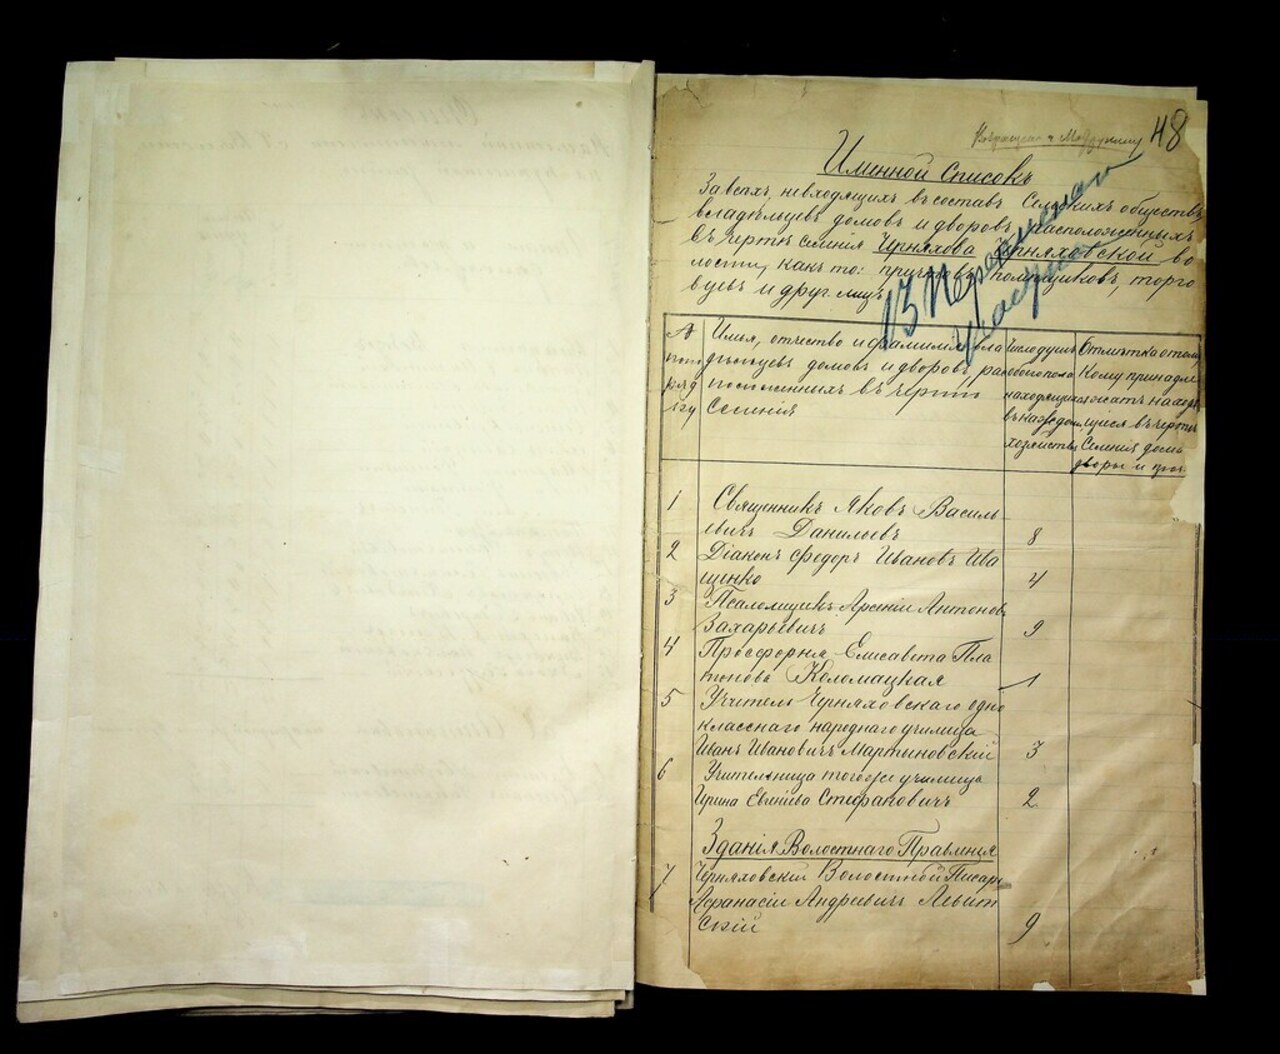 48
Именной Списокъ
За всѣхъ, невходящихъ въ составъ Сельскихъ обществъ,
владѣльцевъ домовъ и дворовъ, расположенныхъ
въ чертѣ селенія Черняхова Черняховской во
лости, какъ то: причтовъ, помѣщиковъ, торго
вцевъ и друг. лицъ
13
участка
№ Имя, отчество и фамилія вла Число душъ Отмѣтка о томъ,
по по дѣльцевъ домовъ и дворовъ, рас обоего пола Кому принадле
ряд положенныхъ въ чертѣ находящихся жатъ находя
ку Селенія въ каждом щіеся въ чертѣ
хозяйствѣ Селенія дома
дворы и проч.
1 Священникъ Яковъ Василь
евичъ Данильевъ 8
2 Діаконъ Федоръ Ивановъ Ива
щенко 4
3 Псаломщикъ Арсеній Антонов
Захарьевичъ 9
4 Просфорня Елисавета Пла
тонова Коломацкая 1
5 Учитель Черняховскаго одно
класснаго народнаго училища
Иванъ Ивановичъ Мартиновскій 3
6 Учительница того же училища
Ирина Евгніева Стефановичъ 2
Зданія Волостнаго Правленія
7 Черняховскій Волостной Писарь
Афанасій Андреевичъ Левит
скій 9